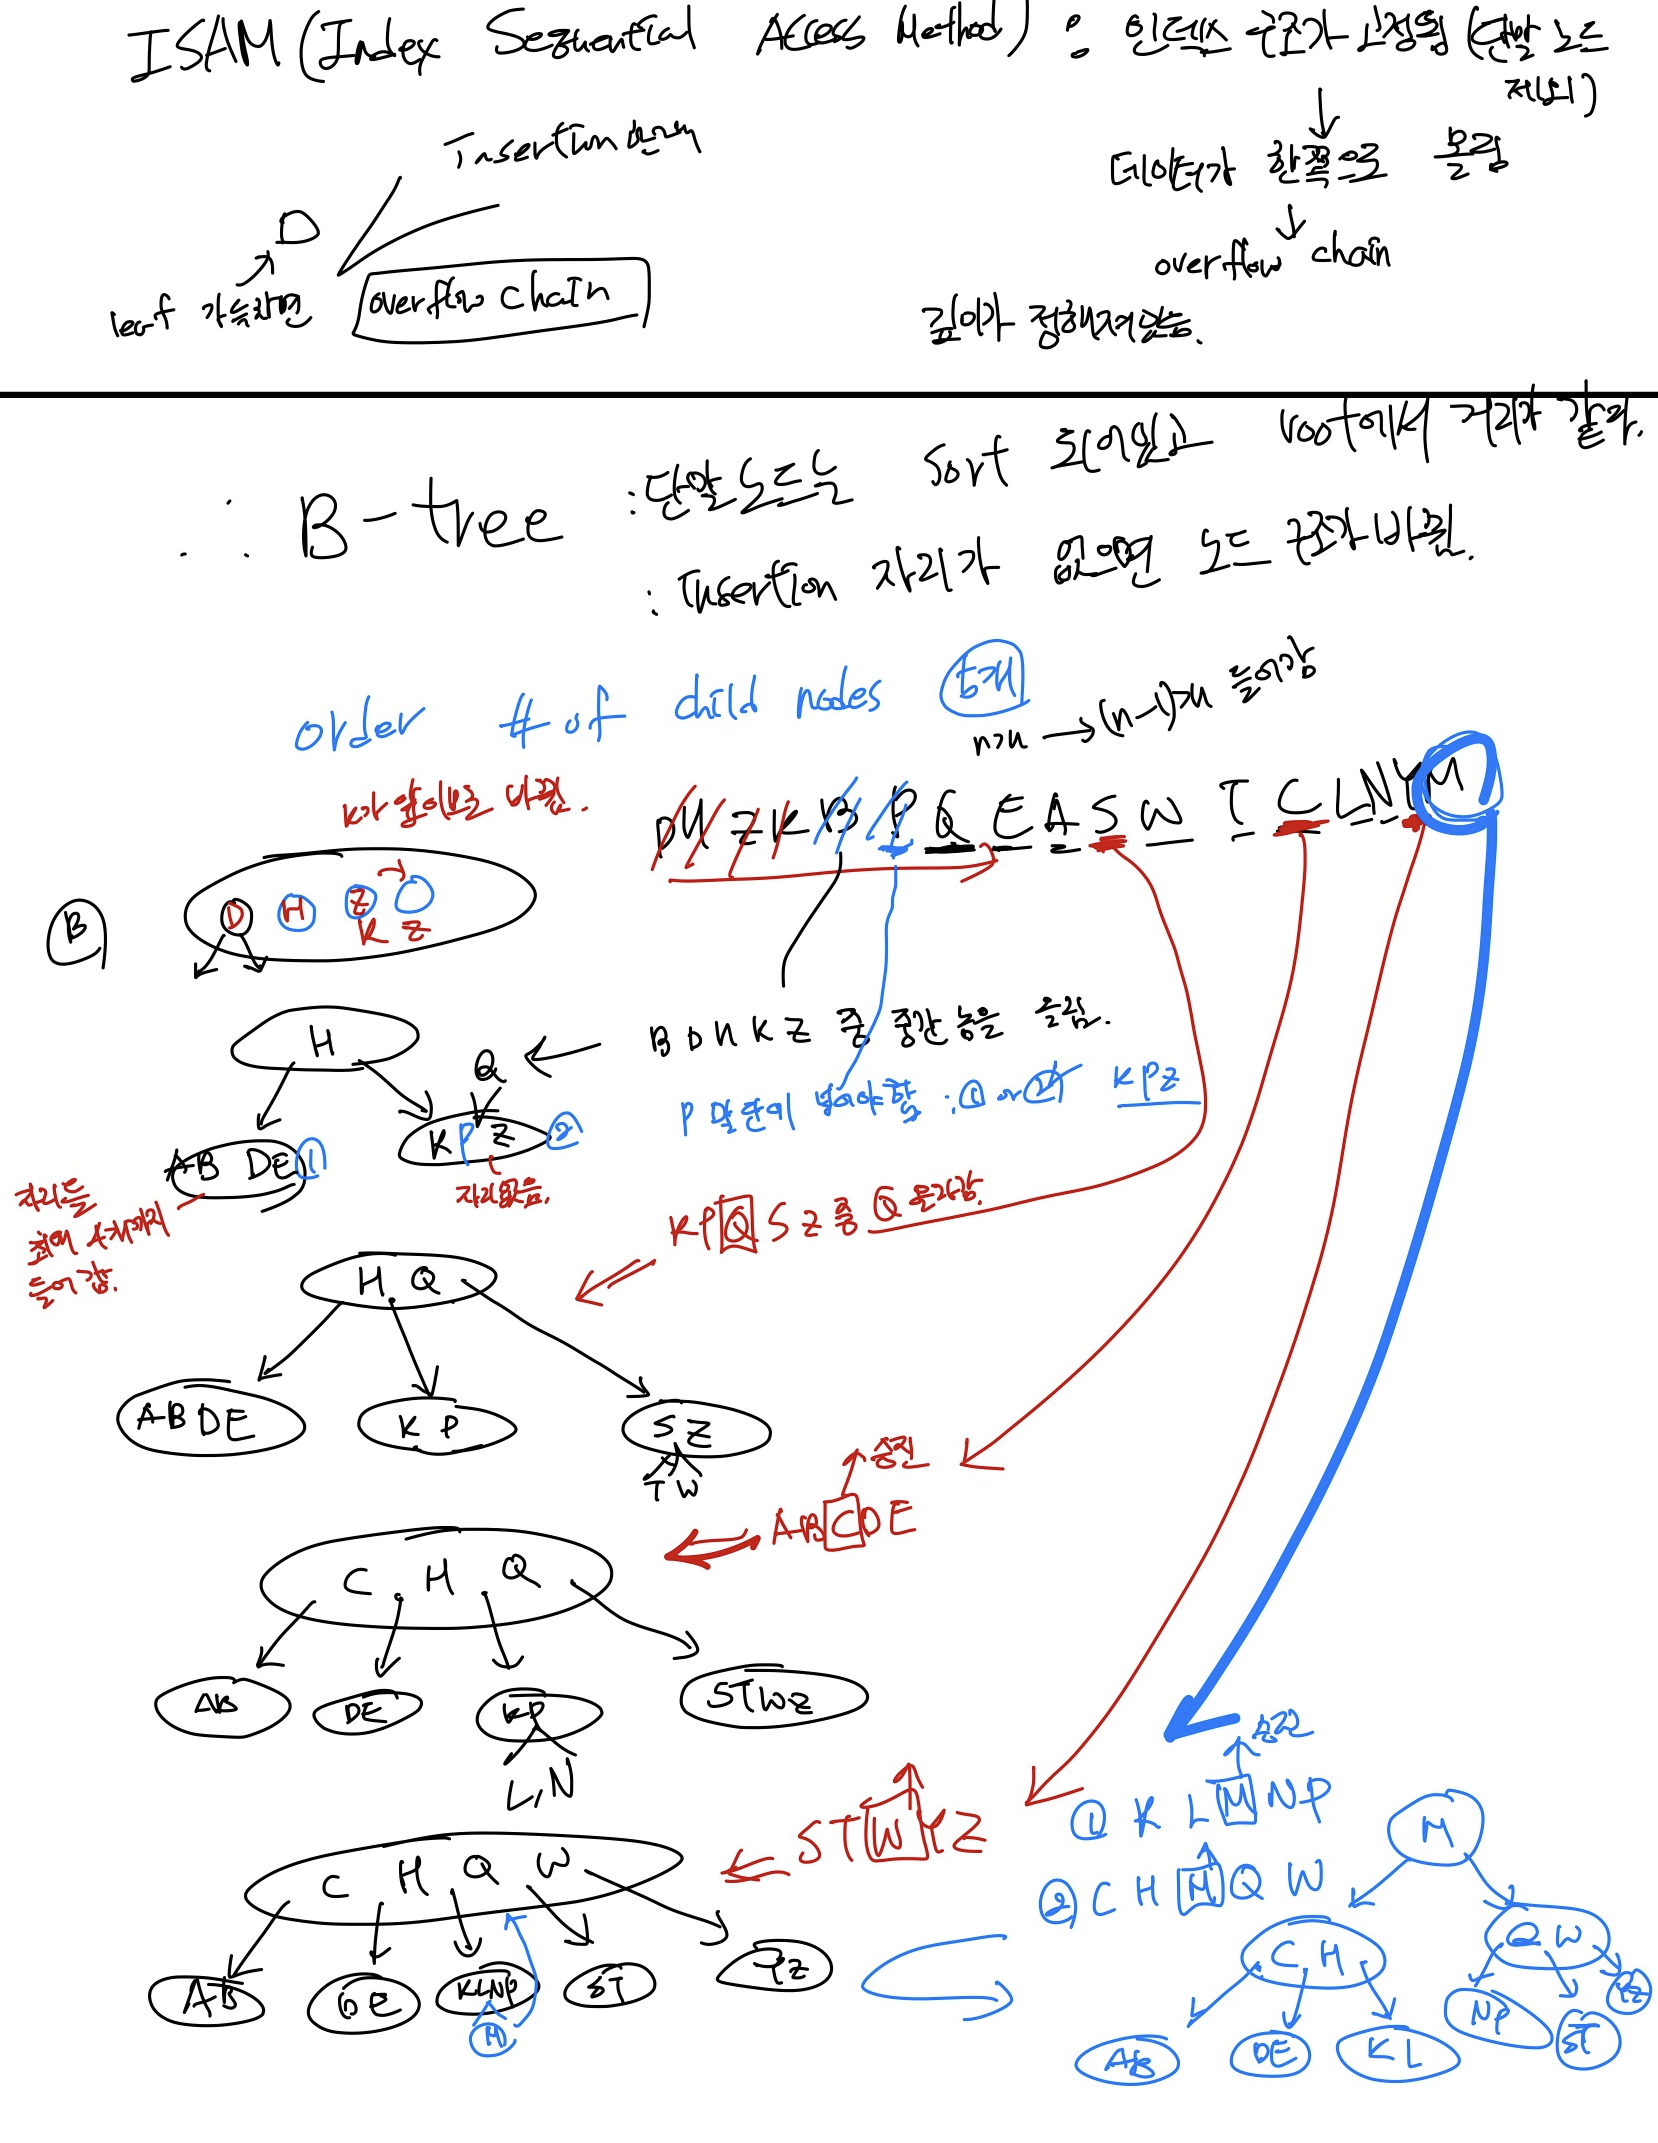 ISAM (Index Sequential Access Method) : 인덱스 구조가 고정됨 (단말 노드
제외)
Insertion
데이터가 한쪽으로 몰림
D
overflow chain
leaf 가득차면
overflow chain
깊이가 정해져있음.
∴ B-tree : 단말노드는 Sort 되어있고 root에서 거리가 같다.
: Insertion 자리가 없으면 노드 구조가 바뀜.
order # of child nodes 5개
n개 → (n-1)개 들어감
K가 앞이므로 바뀜.
D H Z K B P Q E A S W T C L N Y M
B
D H Z
K Z
H
B D H K Z 중 중간 놈을 올림.
Q
P 말단에 넣어야함 : ① or ② KPZ
AB DE ①
K P Z ②
자리없음.
자리들
최대 4개까지
들어감.
KP Q S Z 중 Q 올라감.
H Q
ABDE
K P
S Z
T W
승진
AB C D E
C H Q
AB
DE
KP
STWZ
L, N
승진
① K L M N P
M
S T W Y Z
C H Q W
② C H M Q W
C H
Q W
AB
DE
KLNP
ST
YZ
M
NP
ST
YZ
AB
DE
KL